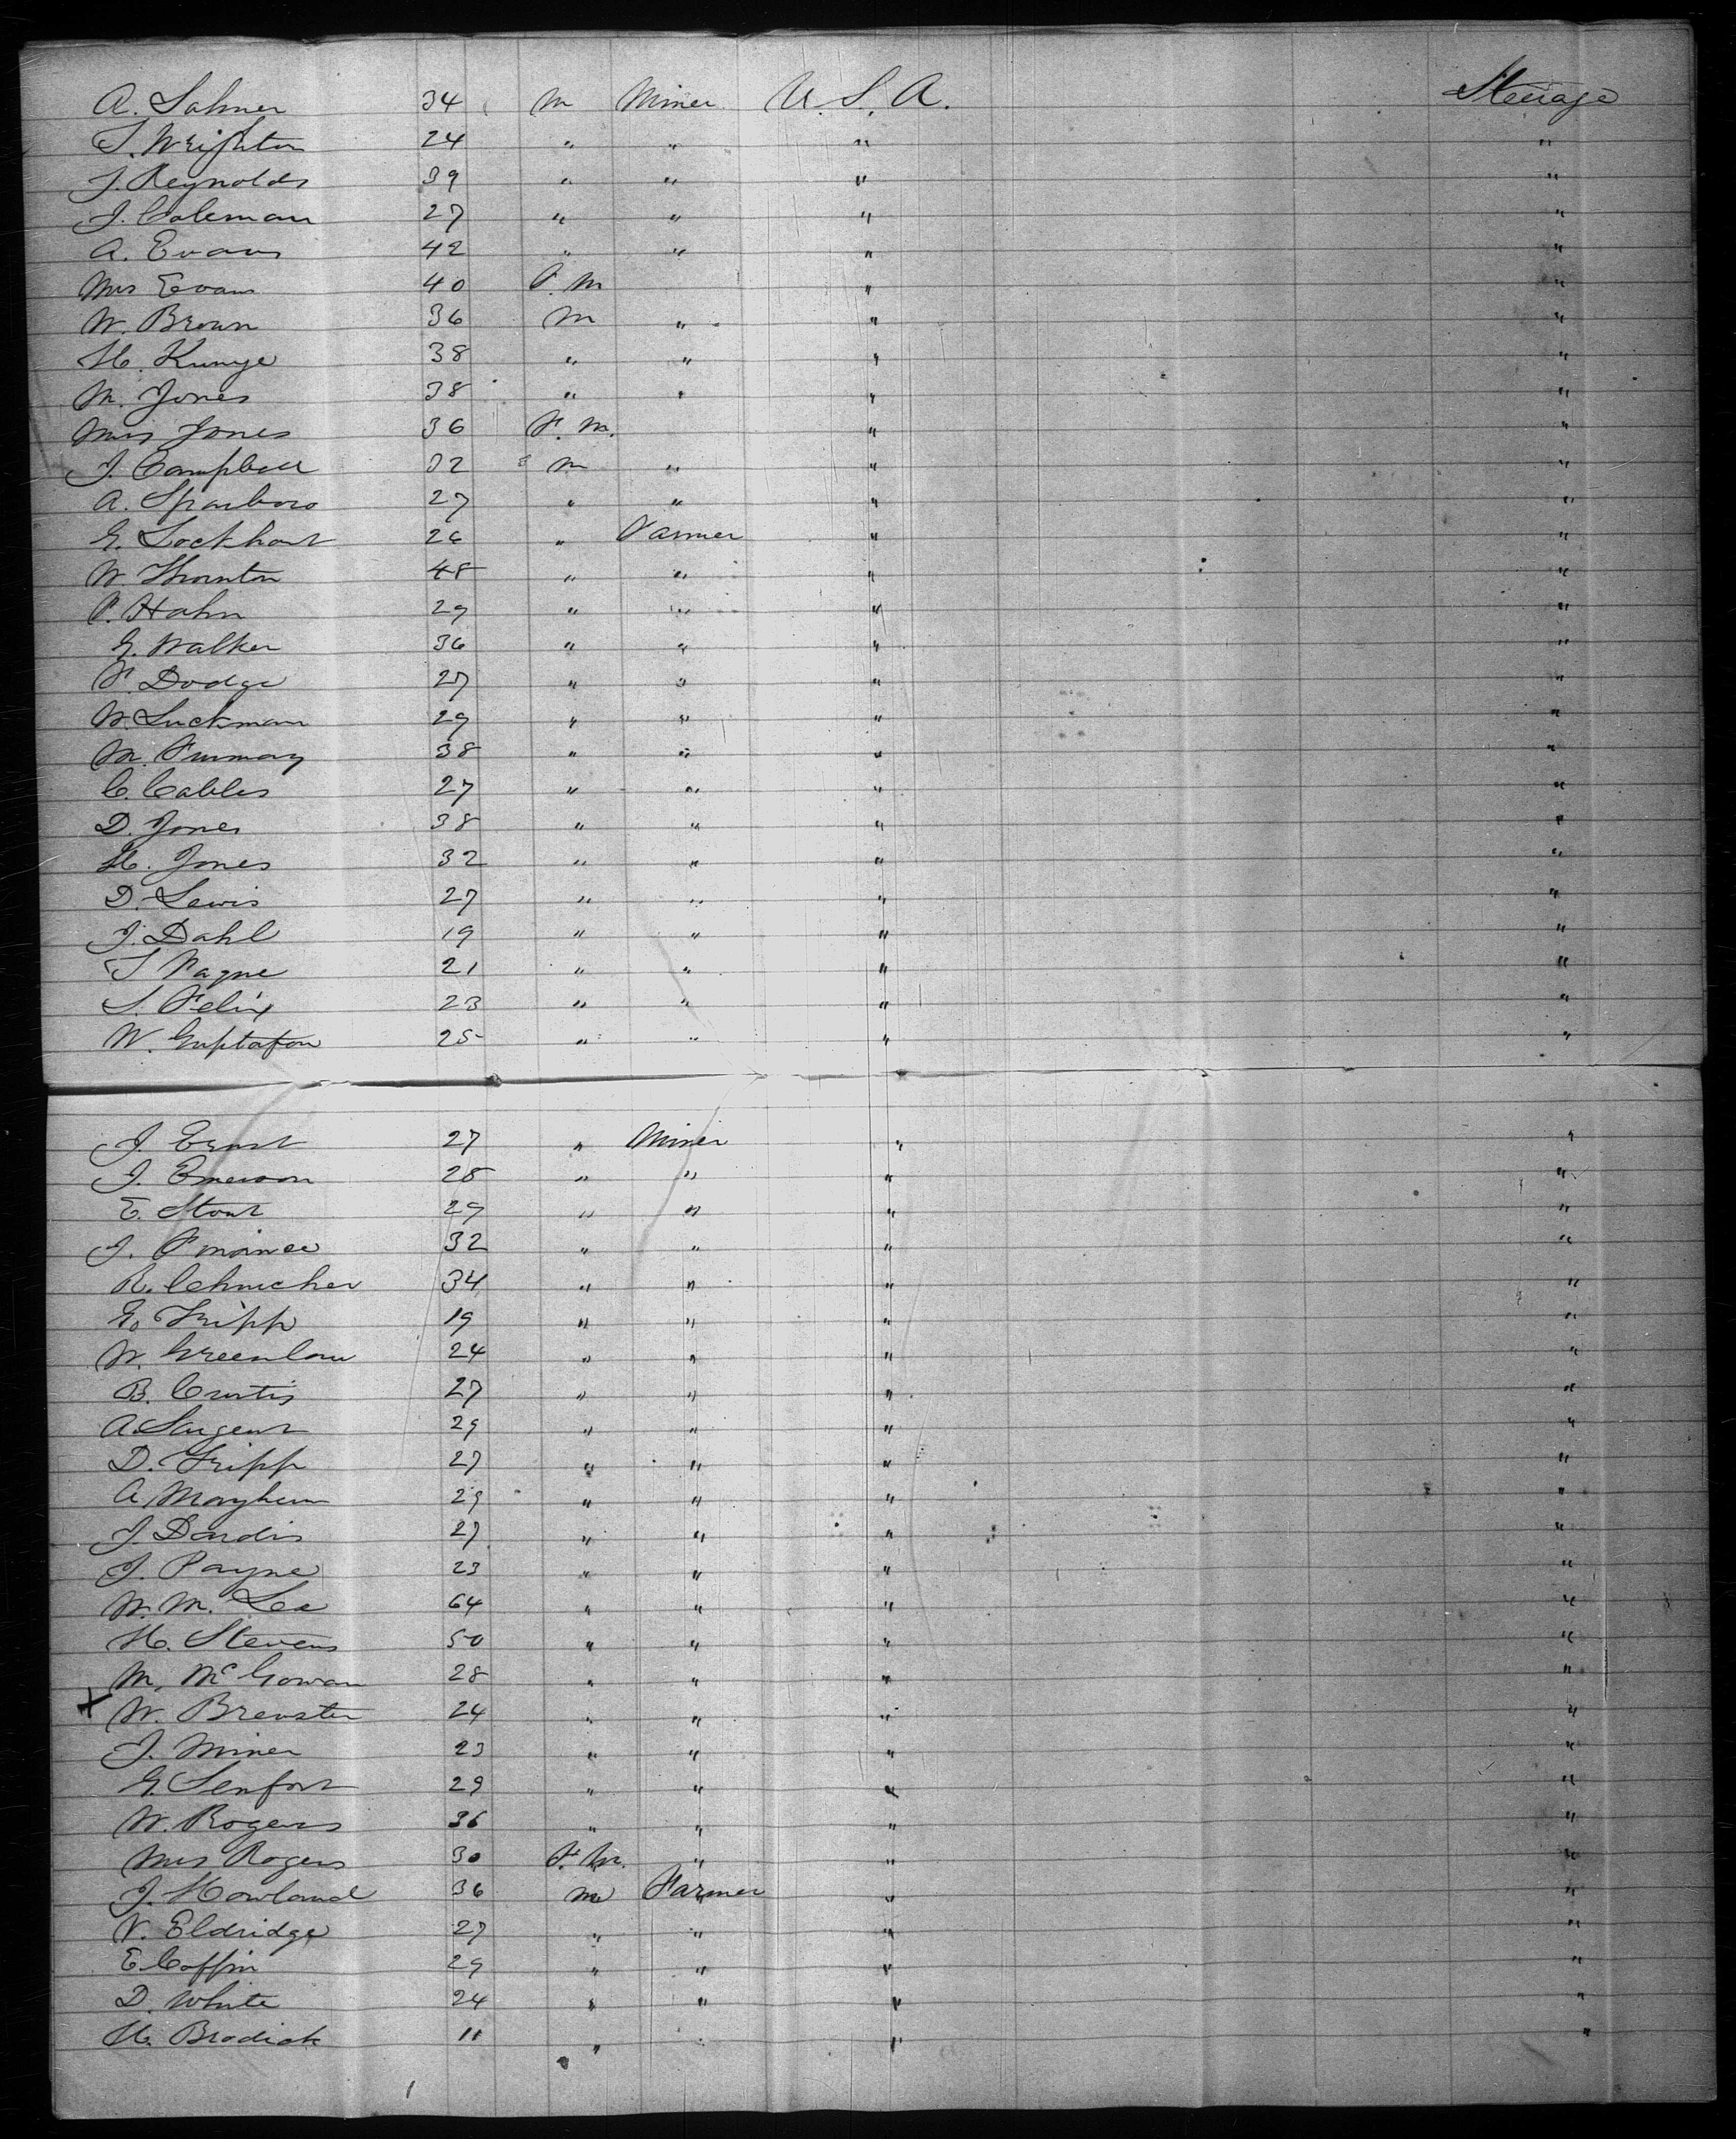 A. Lahmer 34 m Miner U.S.A. Steerage
S. Wrighton 24 " " " "
J. Reynolds 39 " " " "
J. Coleman 27 " " " "
A. Evans 42 " " " "
Mrs Evans 40 F. m " "
W. Brown 36 m " " "
H. Kunye 38 " " " "
M. Jones 38 " " " "
Mrs Jones 36 F. m. " "
J. Campbell 32 m " " "
A. Sparboro 27 " " " "
G. Lockhart 26 " Farmer " "
W. Thornton 48 " " " "
P. Hahn 29 " " " "
G. Walker 36 " " " "
F. Dodge 27 " " " "
W. Luckman 29 " " " "
M. 38 " " " "
C. Cables 27 " " " "
D. Jones 38 " " " "
H. Jones 32 " " " "
D. Lewis 27 " " " "
J. Dahl 19 " " " "
S Payne 21 " " " "
S. Felix 23 " " " "
W. Guptafon 25 " " " "
J. Ernst 27 " Miner " "
J. Emerson 28 " " " "
E. Stout 29 " " " "
J. 32 " " " "
R. 34 " " " "
G. Tripp 19 " " " "
W. Greenlaw 24 " " " "
B. Curtis 27 " " " "
A. Sargent 29 " " " "
D. Tripp 27 " " " "
A Mayhew 29 " " " "
J. Dardis 27 " " " "
J. Payne 23 " " " "
W. M. Lee 64 " " " "
H. Stevens 50 " " " "
M. McGowan 28 " " " "
x W. Brewster 24 " " " "
J. Miner 23 " " " "
G. Senfort 29 " " " "
W. Rogers 36 " " " "
Mrs Rogers 30 F. m. " " "
J. Howland 36 m Farmer " "
N. Eldridge 27 " " " "
E. Coffin 29 " " " "
D. White 24 " " " "
H. Brodick 11 " " " "